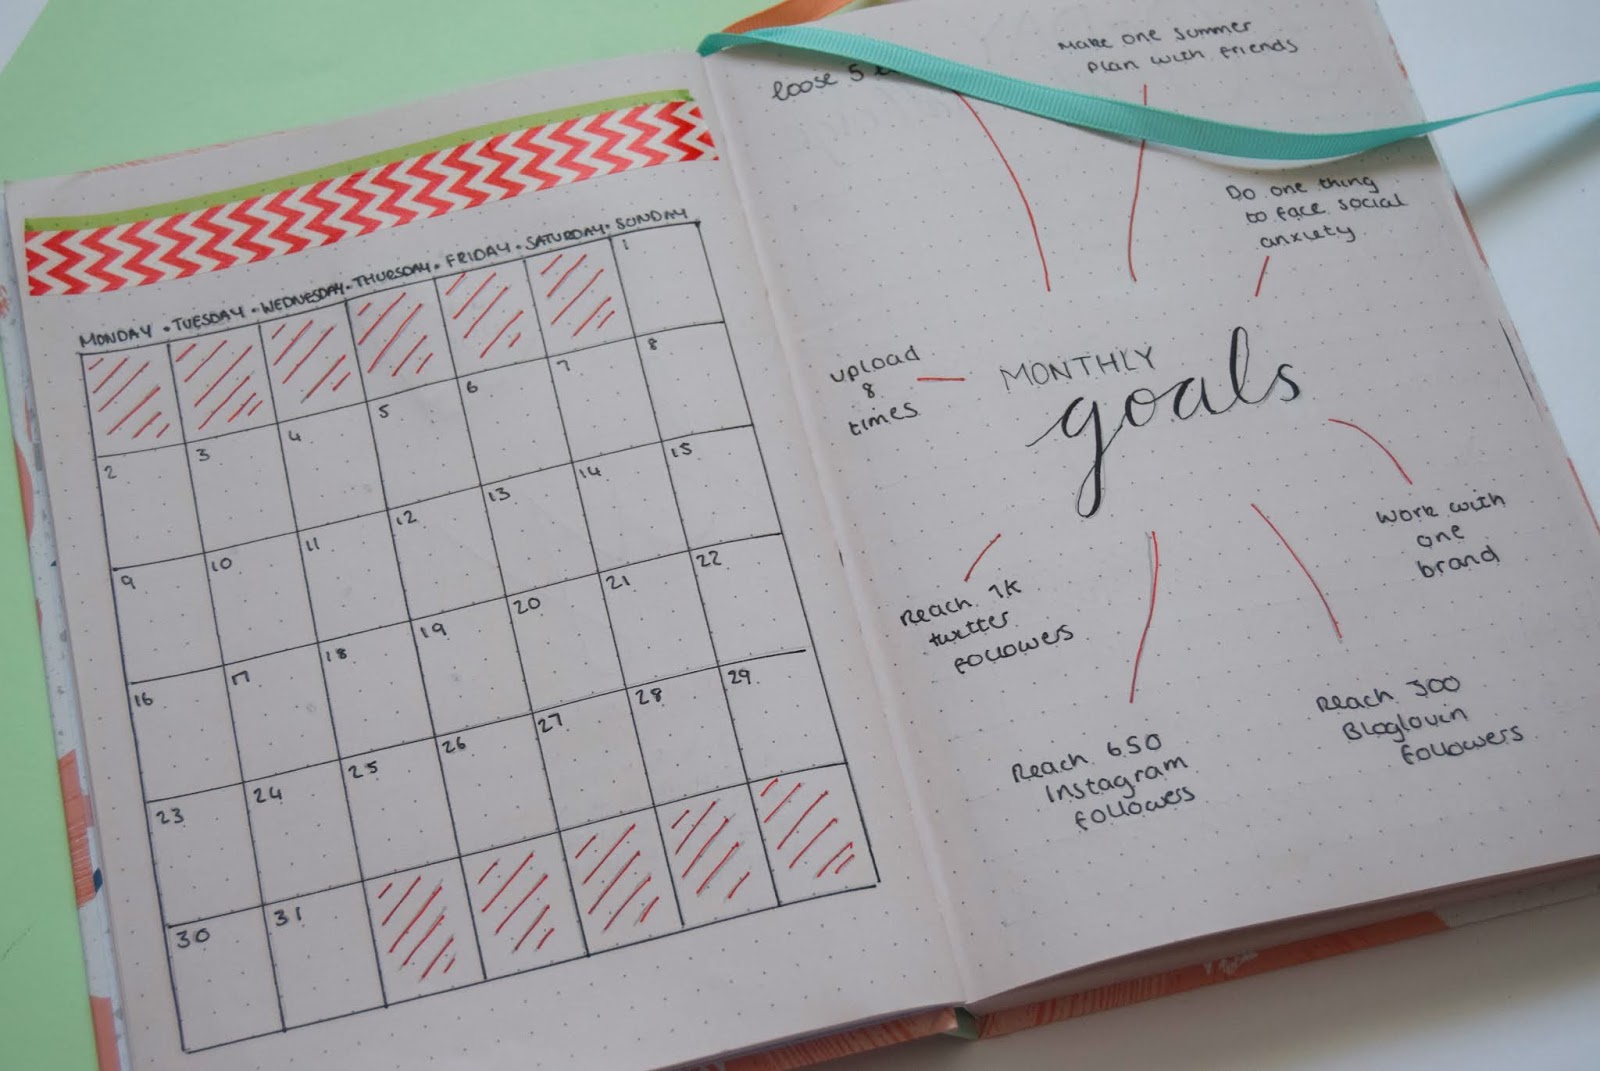 MONDAY • TUESDAY • WEDNESDAY • THURSDAY • FRIDAY • SATURDAY • SUNDAY
1
2 3 4 5 6 7 8
9 10 11 12 13 14 15
16 17 18 19 20 21 22
23 24 25 26 27 28 29
30 31
loose 5
Make one summer
plan with friends
Do one thing
to face social
anxiety
upload
8
times
MONTHLY
goals
work with
one
brand
Reach 1K
twitter
followers
Reach 650
Instagram
followers
Reach 300
Bloglovin
followers